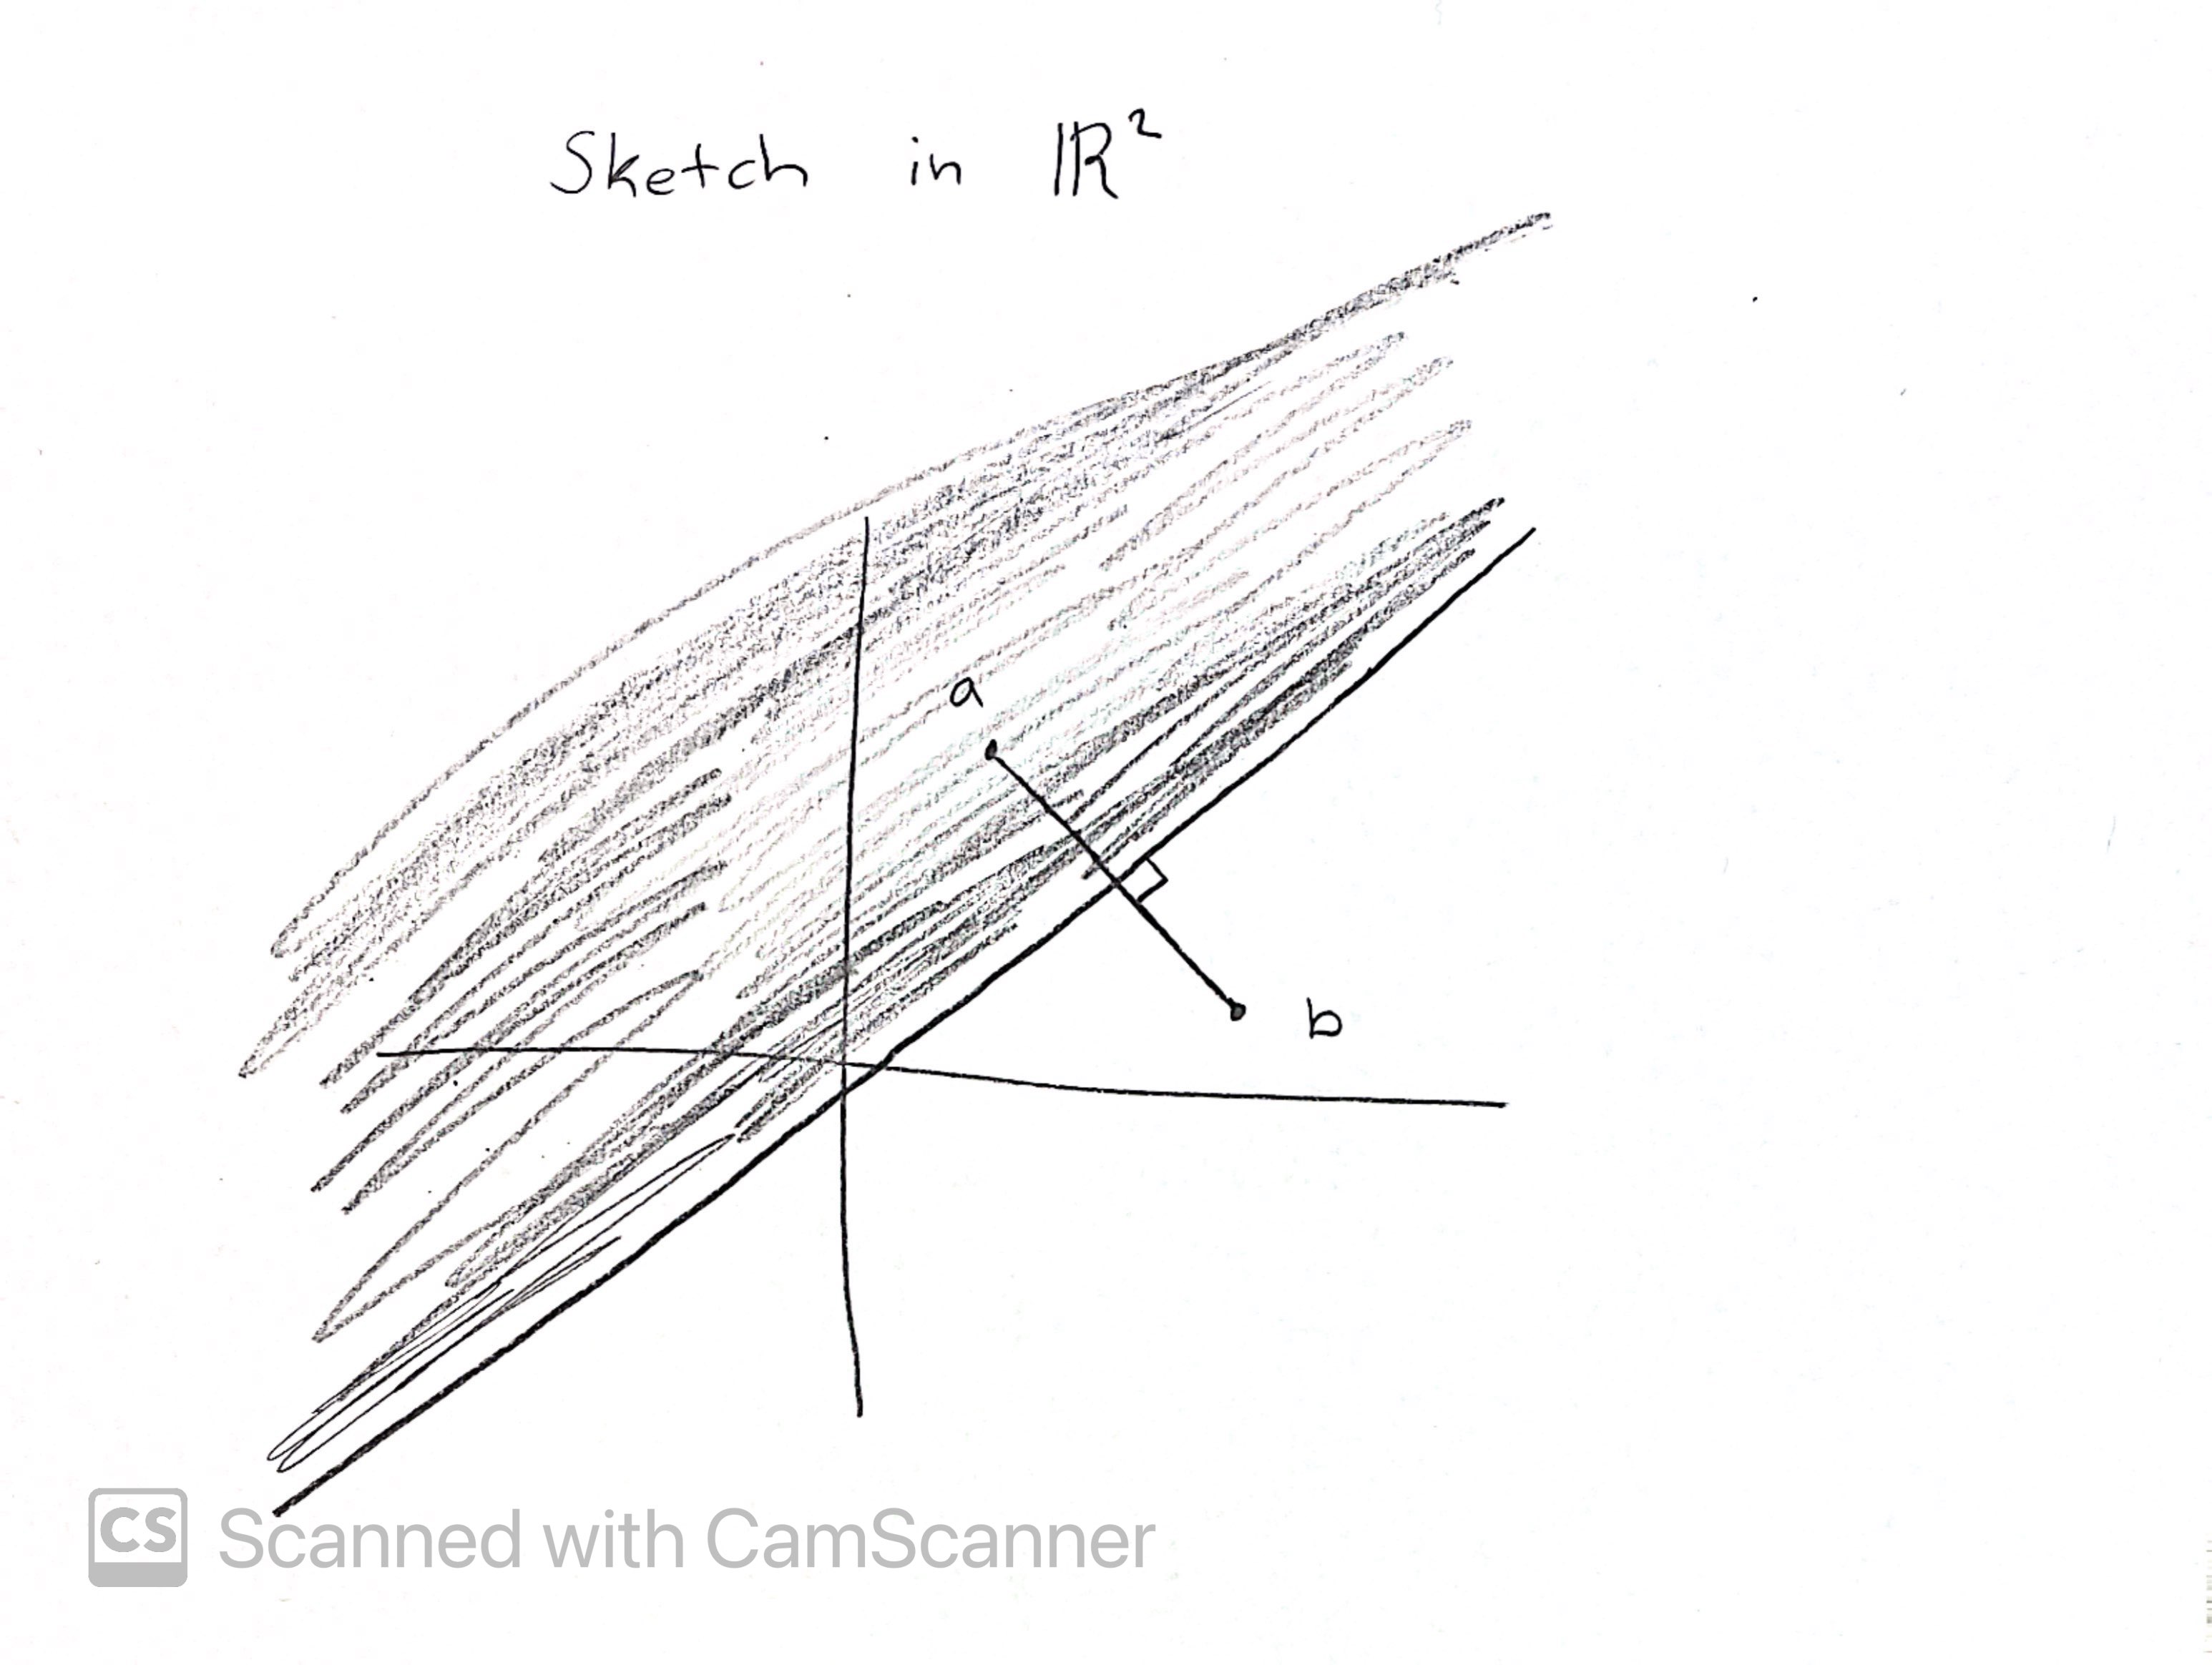 Sketch in ℝ²
a
b
CS Scanned with CamScanner